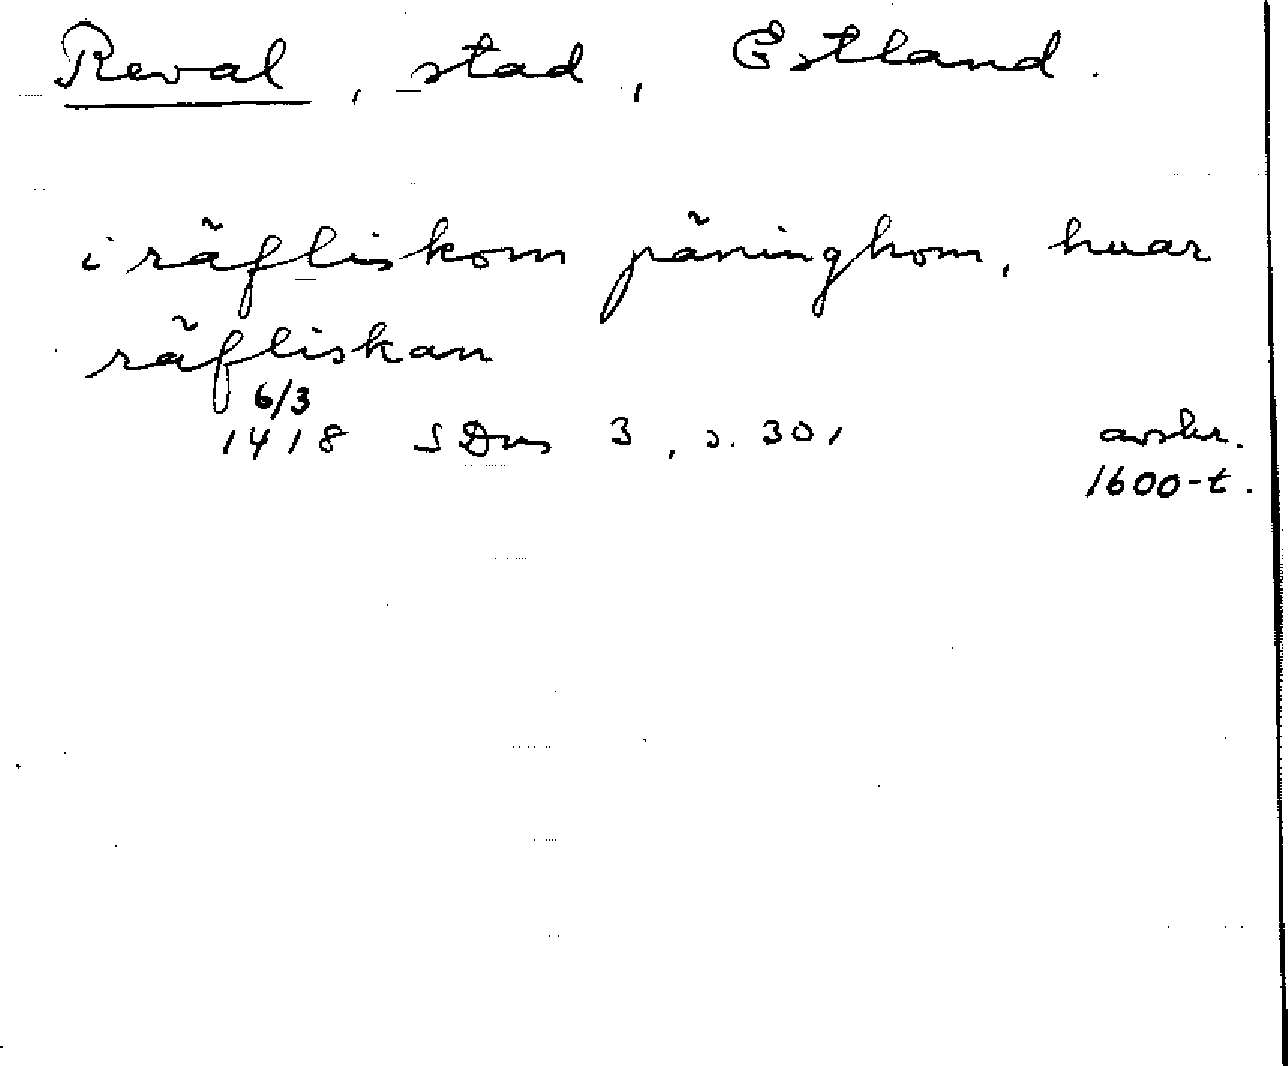 Reval, stad, Estland.
i räfliskom päninghom, huar
räfliskan
6/3
1418 SDns 3, s. 301 avskr.
1600-t.